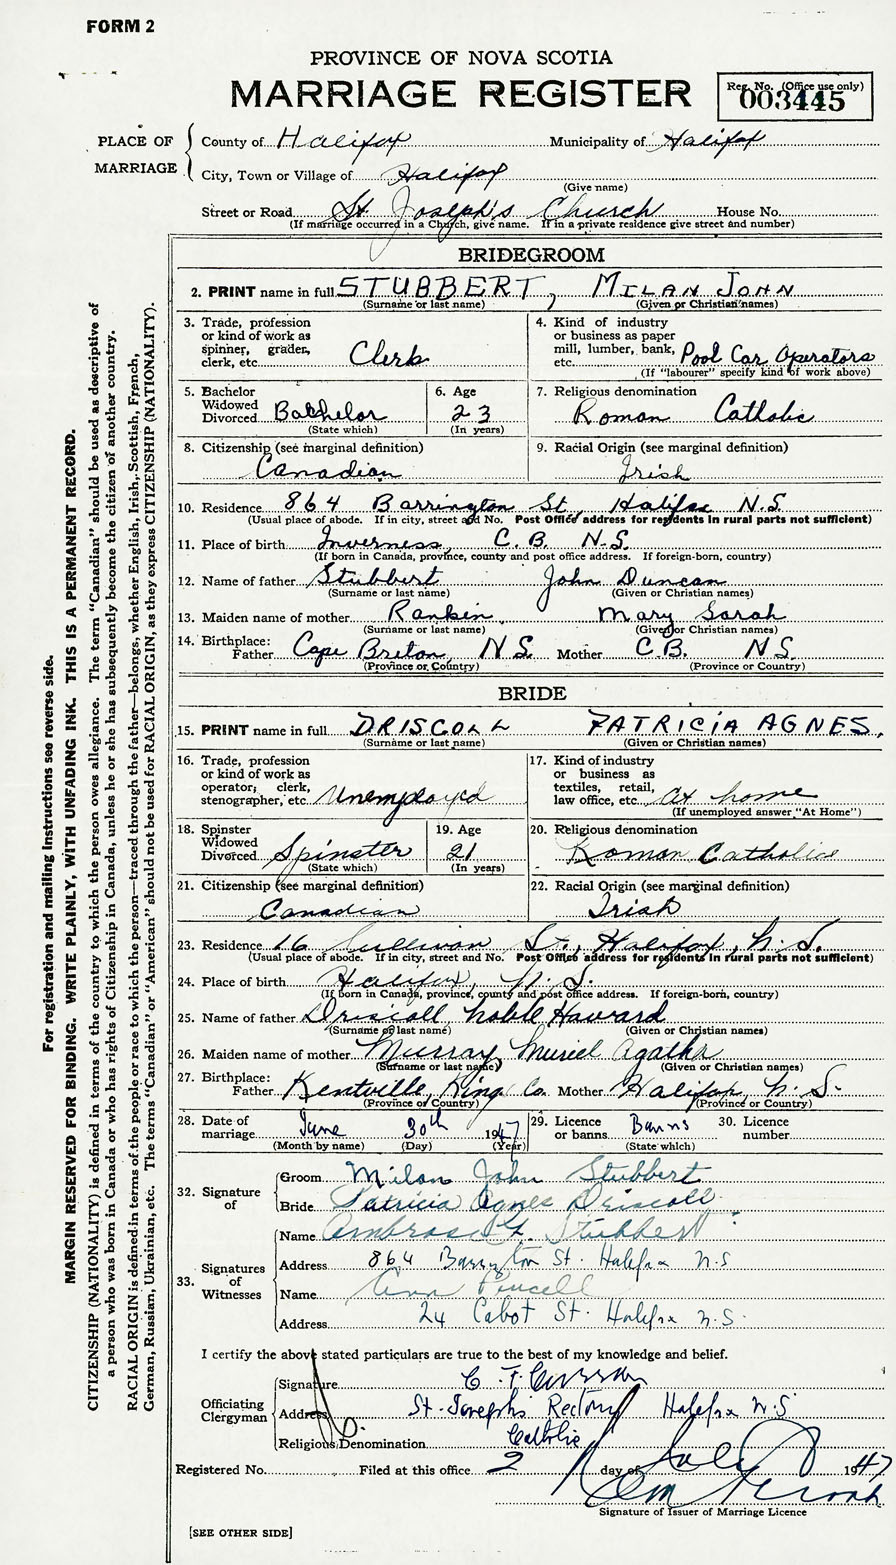 FORM 2
PROVINCE OF NOVA SCOTIA
MARRIAGE REGISTER
Reg. No. (Office use only)
003445
PLACE OF MARRIAGE
County of Halifax Municipality of Halifax
City, Town or Village of Halifax
(Give name)
Street or Road St. Joseph's Church House No.
(If marriage occurred in a Church, give name. If in a private residence give street and number)
BRIDEGROOM
2. PRINT name in full STUBBERT, MILAN JOHN
(Surname or last name) (Given or Christian names)
3. Trade, profession or kind of work as spinner, grader, clerk, etc. Clerk
4. Kind of industry or business as paper mill, lumber, bank, etc. Pool Car Operators
(If "labourer" specify kind of work above)
5. Bachelor Widowed Divorced Bachelor
(State which)
6. Age 23
(In years)
7. Religious denomination
Roman Catholic
8. Citizenship (see marginal definition)
Canadian
9. Racial Origin (see marginal definition)
Irish
10. Residence 864 Barrington St, Halifax N.S.
(Usual place of abode. If in city, street and No. Post Office address for residents in rural parts not sufficient)
11. Place of birth Inverness, C.B. N.S.
(If born in Canada, province, county and post office address. If foreign-born, country)
12. Name of father Stubbert John Duncan
(Surname or last name) (Given or Christian names)
13. Maiden name of mother Rankin, Mary Sarah
(Surname or last name) (Given or Christian names)
14. Birthplace:
Father Cape Breton, N.S. Mother C.B. N.S.
(Province or Country) (Province or Country)
BRIDE
15. PRINT name in full DRISCOLL PATRICIA AGNES,
(Surname or last name) (Given or Christian names)
16. Trade, profession or kind of work as operator, clerk, stenographer, etc. Unemployed
17. Kind of industry or business as textiles, retail, law office, etc. at home
(If unemployed answer "At Home")
18. Spinster Widowed Divorced Spinster
(State which)
19. Age 21
(In years)
20. Religious denomination
Roman Catholic
21. Citizenship (see marginal definition)
Canadian
22. Racial Origin (see marginal definition)
Irish
23. Residence 16 Sullivan St., Halifax, N.S.
(Usual place of abode. If in city, street and No. Post Office address for residents in rural parts not sufficient)
24. Place of birth Halifax, N.S.
(If born in Canada, province, county and post office address. If foreign-born, country)
25. Name of father Driscoll Noble Howard
(Surname or last name) (Given or Christian names)
26. Maiden name of mother Murray Muriel Agatha
(Surname or last name) (Given or Christian names)
27. Birthplace:
Father Kentville, Kings Co. Mother Halifax, N.S.
(Province or Country) (Province or Country)
28. Date of marriage June 30th 1947
(Month by name) (Day) (Year)
29. Licence or banns Banns
(State which)
30. Licence number
32. Signature of
Groom Milan John Stubbert
Bride Patricia Agnes Driscoll
33. Signatures of Witnesses
Name Ambrose L. Stubbert
Address 864 Barrington St. Halifax N.S
Name Ann Purcell
Address 24 Cabot St. Halifax N.S.
I certify the above stated particulars are true to the best of my knowledge and belief.
Officiating Clergyman
Signature C. F. Curran
Address St. Joseph's Rectory Halifax N.S
Religious Denomination Catholic
Registered No. Filed at this office 2 day of July 1947
Signature of Issuer of Marriage Licence
[SEE OTHER SIDE]
For registration and mailing instructions see reverse side.
MARGIN RESERVED FOR BINDING. WRITE PLAINLY, WITH UNFADING INK. THIS IS A PERMANENT RECORD.
CITIZENSHIP (NATIONALITY) is defined in terms of the country to which the person owes allegiance. The term "Canadian" should be used as descriptive of
a person who was born in Canada or who has rights of Citizenship in Canada, unless he or she has subsequently become the citizen of another country.
RACIAL ORIGIN is defined in terms of the people or race to which the person—traced through the father—belongs, whether English, Irish, Scottish, French,
German, Russian, Ukrainian, etc. The terms "Canadian" or "American" should not be used for RACIAL ORIGIN, as they express CITIZENSHIP (NATIONALITY).